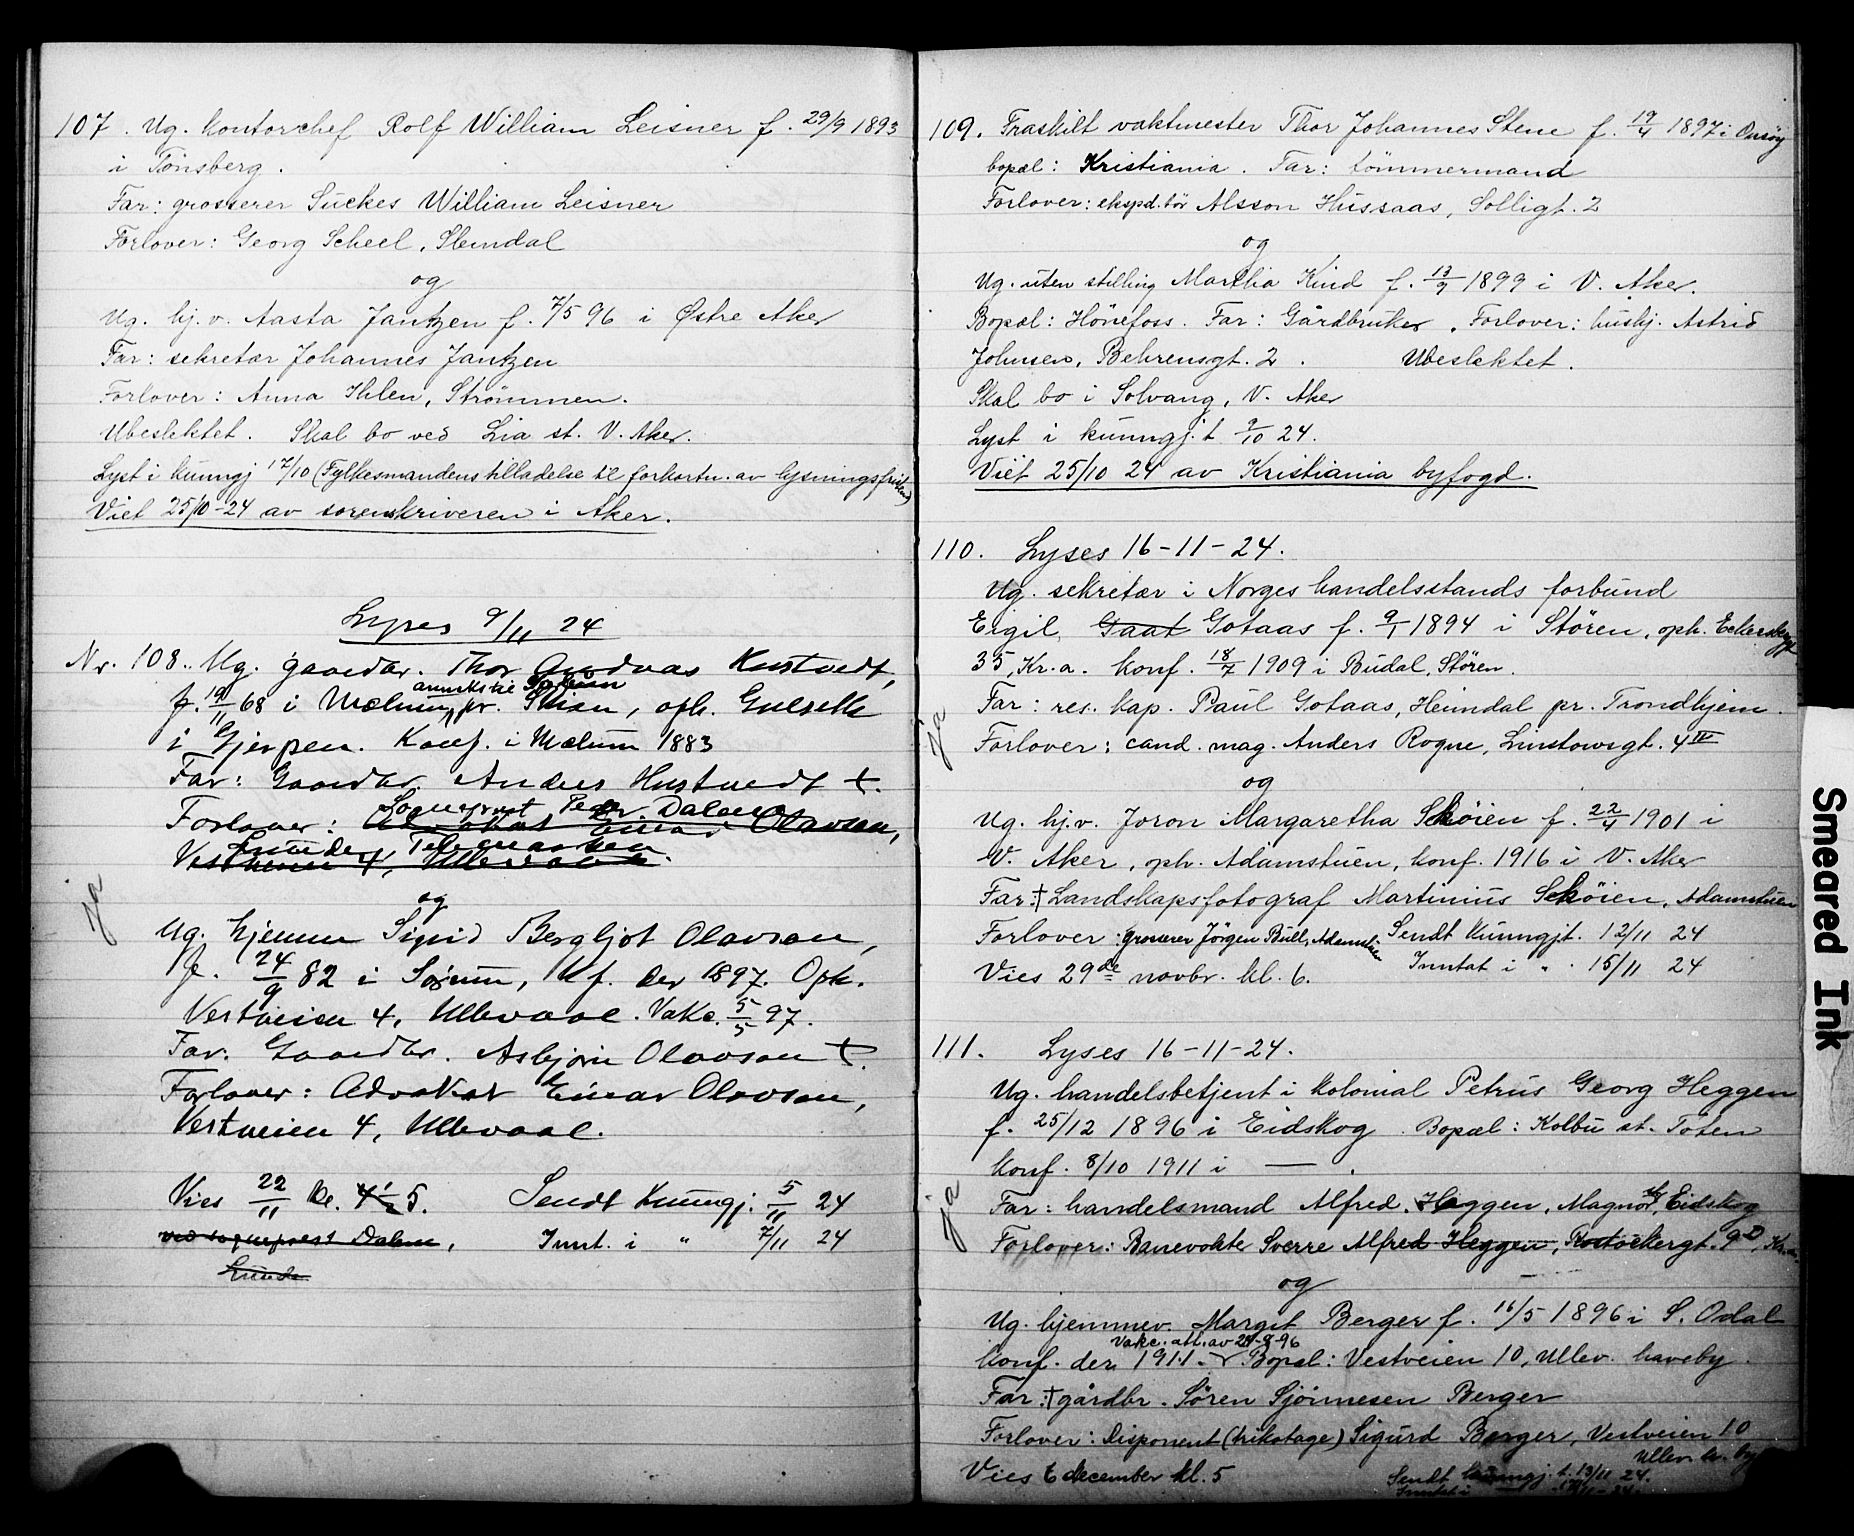 107. Ug. kontorchef Rolf William Leisner f. 29/9 1893
i Tönsberg.
Far: grosserer Suckes William Leisner
Forlover: Georg Scheel, Slemdal
og
Ug. hj.v. Aasta Jantzen f. 7/5 96 i Østre Aker
Far: sekretær Johannes Jantzen
Forlover: Anna Ihlen, Strömmen.
Ubeslektet. Skal bo ved Lia st. V. Aker.
Lyst i kunngj 17/10 (Fylkesmandens tilladelse til forkortn. av lysningsfristen)
Viet 25/10-24 av sorenskriveren i Aker.
Lyses 9/11 24
Nr. 108. Ug. gaardbr. Thor Andreas Hustvedt,
annekskie Solum
f. 19/11 68 i Mælum, pr. Skien, oph. Gulseth
i Gjerpen. Konf. i Mælum 1883
Far: Gaardbr. Anders Hustvedt †.
Sogneprest Peder Dalen
Forlover: Advokat Einar Olavson,
Lunde, Telemarken
Vestveien 4, Ullevaal.
og
Ug. hjemmev Sigrid Bergljot Olavson,
f. 24/9 82 i Sørum, Kf. der 1897. Oph.
Vestveien 4, Ullevaal. Vakc. 5/5 97.
Far. Gaardbr. Asbjørn Olavson †.
Forlover: Advokat Einar Olavson,
Vestveien 4, Ullevaal.
Vies 22/11 kl. 4½ 5. Sendt Kunngj: 5/11 24
ved sogneprest Dalen, Innt. i " 7/11 24
Lunde
ja
109. Fraskilt vaktmester Thor Johannes Stene f. 19/4 1897 i Onsöy
bopæl: Kristiania. Far: tömmermand
Forlover: ekspd.tör Alsson Hussaas, Solligt. 2
og
Ug. uten stilling Martha Kind f. 13/9 1899 i V. Aker.
Bopæl: Hönefoss. Far: Gårdbruker. Forlover: huskj. Astrid
Johnsen, Behrensgt. 2. Ubeslektet.
Skal bo i Solvang, V. Aker
Lyst i kunngj.t 9/10 24.
Viet 25/10 24 av Kristiania byfogd.
110. Lyses 16-11-24.
Ug. sekretær i Norges handelsstands forbund
Eigil Gaat Gotaas f. 9/1 1894 i Stören, oph. Eckersbergt
35, Kr.a. konf. 18/7 1909 i Budal, Stören.
Far: res. kap. Paul Gotaas, Heimdal pr. Trondhjem.
Forlover: cand. mag. Anders Rogne, Linstowsgt. 4 IV
og
Ug. hj.v. Joron Margaretha Sköien f. 22/4 1901 i
V. Aker, oph. Adamstuen, konf. 1916 i V. Aker
Far: † Landskapsfotograf Martinius Sköien, Adamstuen
Forlover: grosserer Jörgen Bull, Adamstuen Sendt Kunngjt. 12/11 24
Vies 29de novbr. kl. 6. Inntat i " . 15/11 24
ja
111. Lyses 16-11-24.
Ug. handelsbetjent i kolonial Petrus Georg Heggen
f. 25/12 1896 i Eidskog. Bopæl: Kolbu st. Toten
konf. 8/10 1911 i — .
Far: handelsmand Alfred Heggen, Magnor, Eidskog
Forlover: Banevokter Sverre Alfred Heggen, Rostockergt. 9
og
Ug. hjemmev. Margit Berger f. 16/5 1896 i S. Odal
Vakc. att. av 28-9-96
konf. der 1911. Bopæl: Vestveien 10, Ullev. haveby.
Far: † gårdbr. Sören Sjönnesen Berger
Forlover: Disponent (trikotage) Sigurd Berger, Vestveien 10
Ullev. h. by
Vies 6 december kl. 5 Sendt kunngj.t. 13/11 24.
Inntat i
ja
Smeared Ink